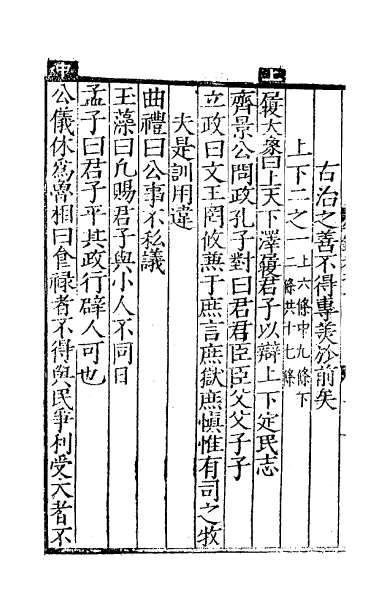 古治之善不得專羙於前矣
上下二之一上六條中九條下二條共十七條
上
履大象曰上天下澤履君子以辯上下定民志
齊景公問政孔子對曰君君臣臣父父子子
立政曰文王罔攸兼于庶言庶獄庶慎惟有司之牧
夫是訓用違
曲禮曰公事不私議
玉藻曰凡賜君子與小人不同日
孟子曰君子平其政行辟人可也
中
公儀休爲魯相曰食禄者不得與民爭利受大者不